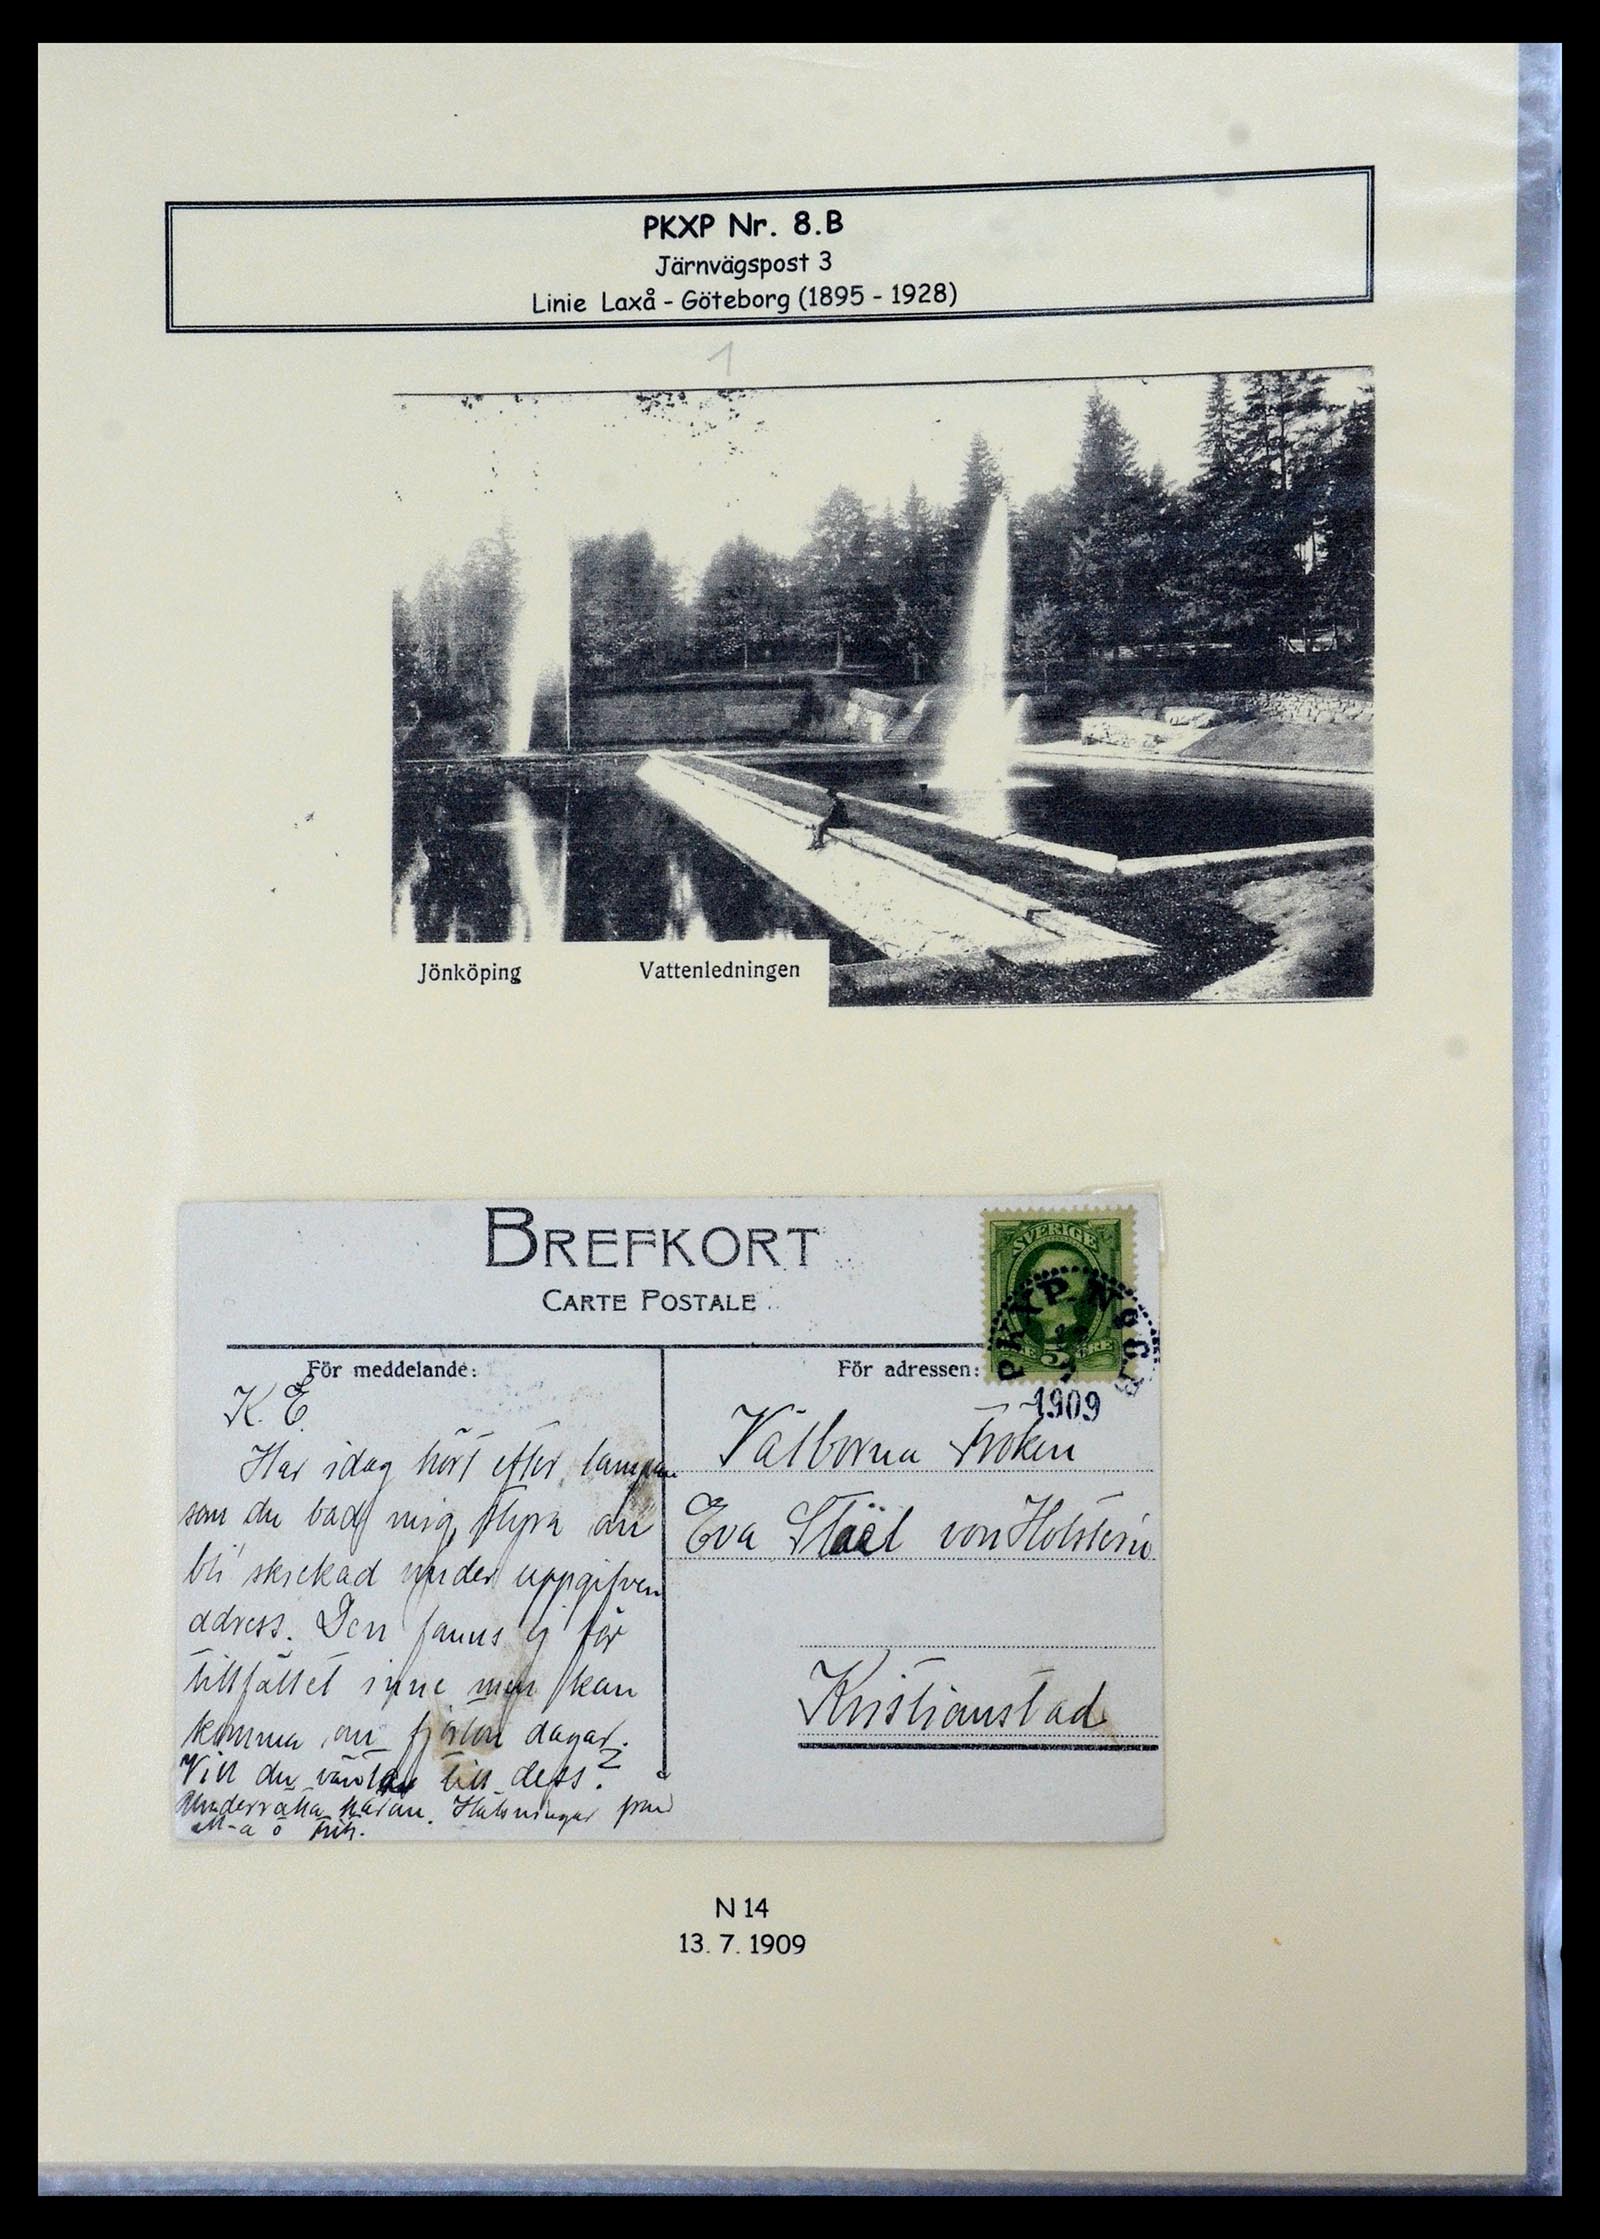 PKXP Nr. 8.B
Järnvägspost 3
Linie Laxå - Göteborg (1895 - 1928)
1
Jönköping Vattenledningen
BREFKORT
CARTE POSTALE
SVERIGE
5
PKXP N 8
1909
För meddelande: För adressen:
K. E.
Har idag hört efter lampan
som du bad mig, skulle
bli skickad under uppgifven
adress. Den fanns ej för
tillfället inne men kan
komma om fjorton dagar.
Vill du vänta till dess?
Underrätta härom. Hälsningar från
M-a o
Välborna Fröken
Eva Staël von Holstein
Kristianstad
N 14
13. 7. 1909